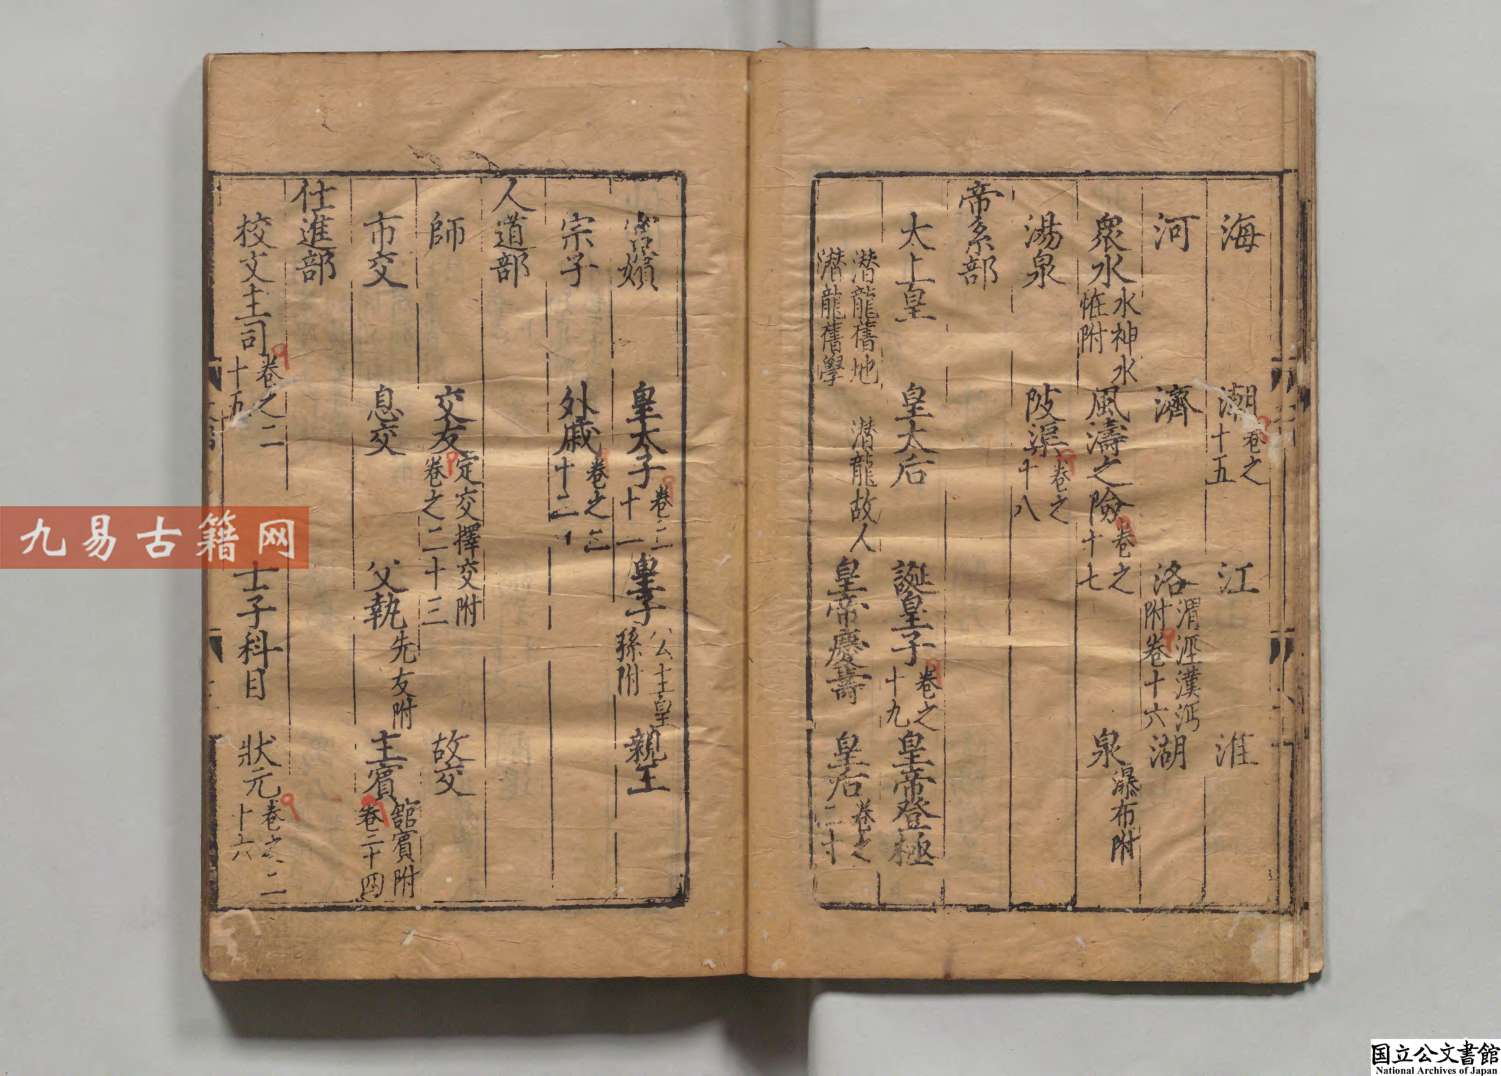 海　潮卷之十五　江　淮
河　濟　洛渭涇漢沔附卷十六　湖
衆水水神水恠附　風濤之險卷之十七　泉瀑布附
湯泉　陂渠卷之十八
帝系部
太上皇　皇太后　誕皇子卷之十九　皇帝登極
潜龍舊地　潜龍舊學　潜龍故人　皇帝慶壽　皇后卷之二十
宮嬪　皇太子卷之二十一　皇子公主皇孫附　親王
宗子　外戚卷之二十二
人道部
師　交友定交擇交附卷之二十三　故交
市交　息交　父執先友附　主賓舘賓附卷二十四
仕進部
校文主司卷之二十五　士子科目　狀元卷之二十六
九易古籍网
国立公文書館
National Archives of Japan